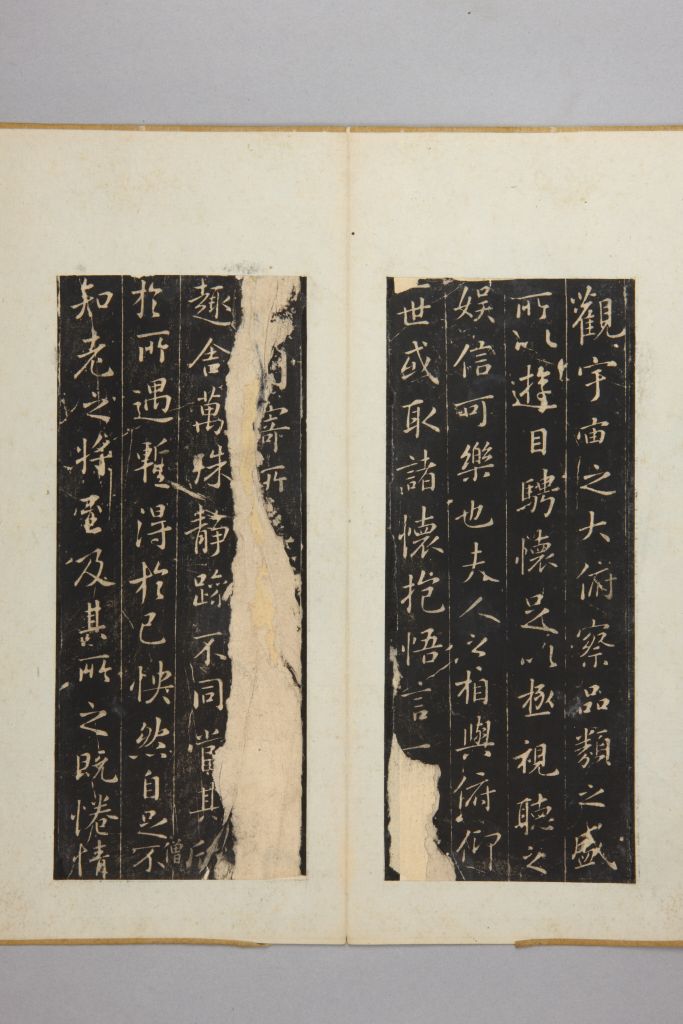 觀宇宙之大俯察品類之盛
所以遊目騁懷足以極視聽之
娛信可樂也夫人之相與俯仰
世或取諸懷抱悟言一
寄所
趣舍萬殊靜躁不同當其
於所遇暫得於己怏然自足不
僧
知老之將至及其所之既惓情